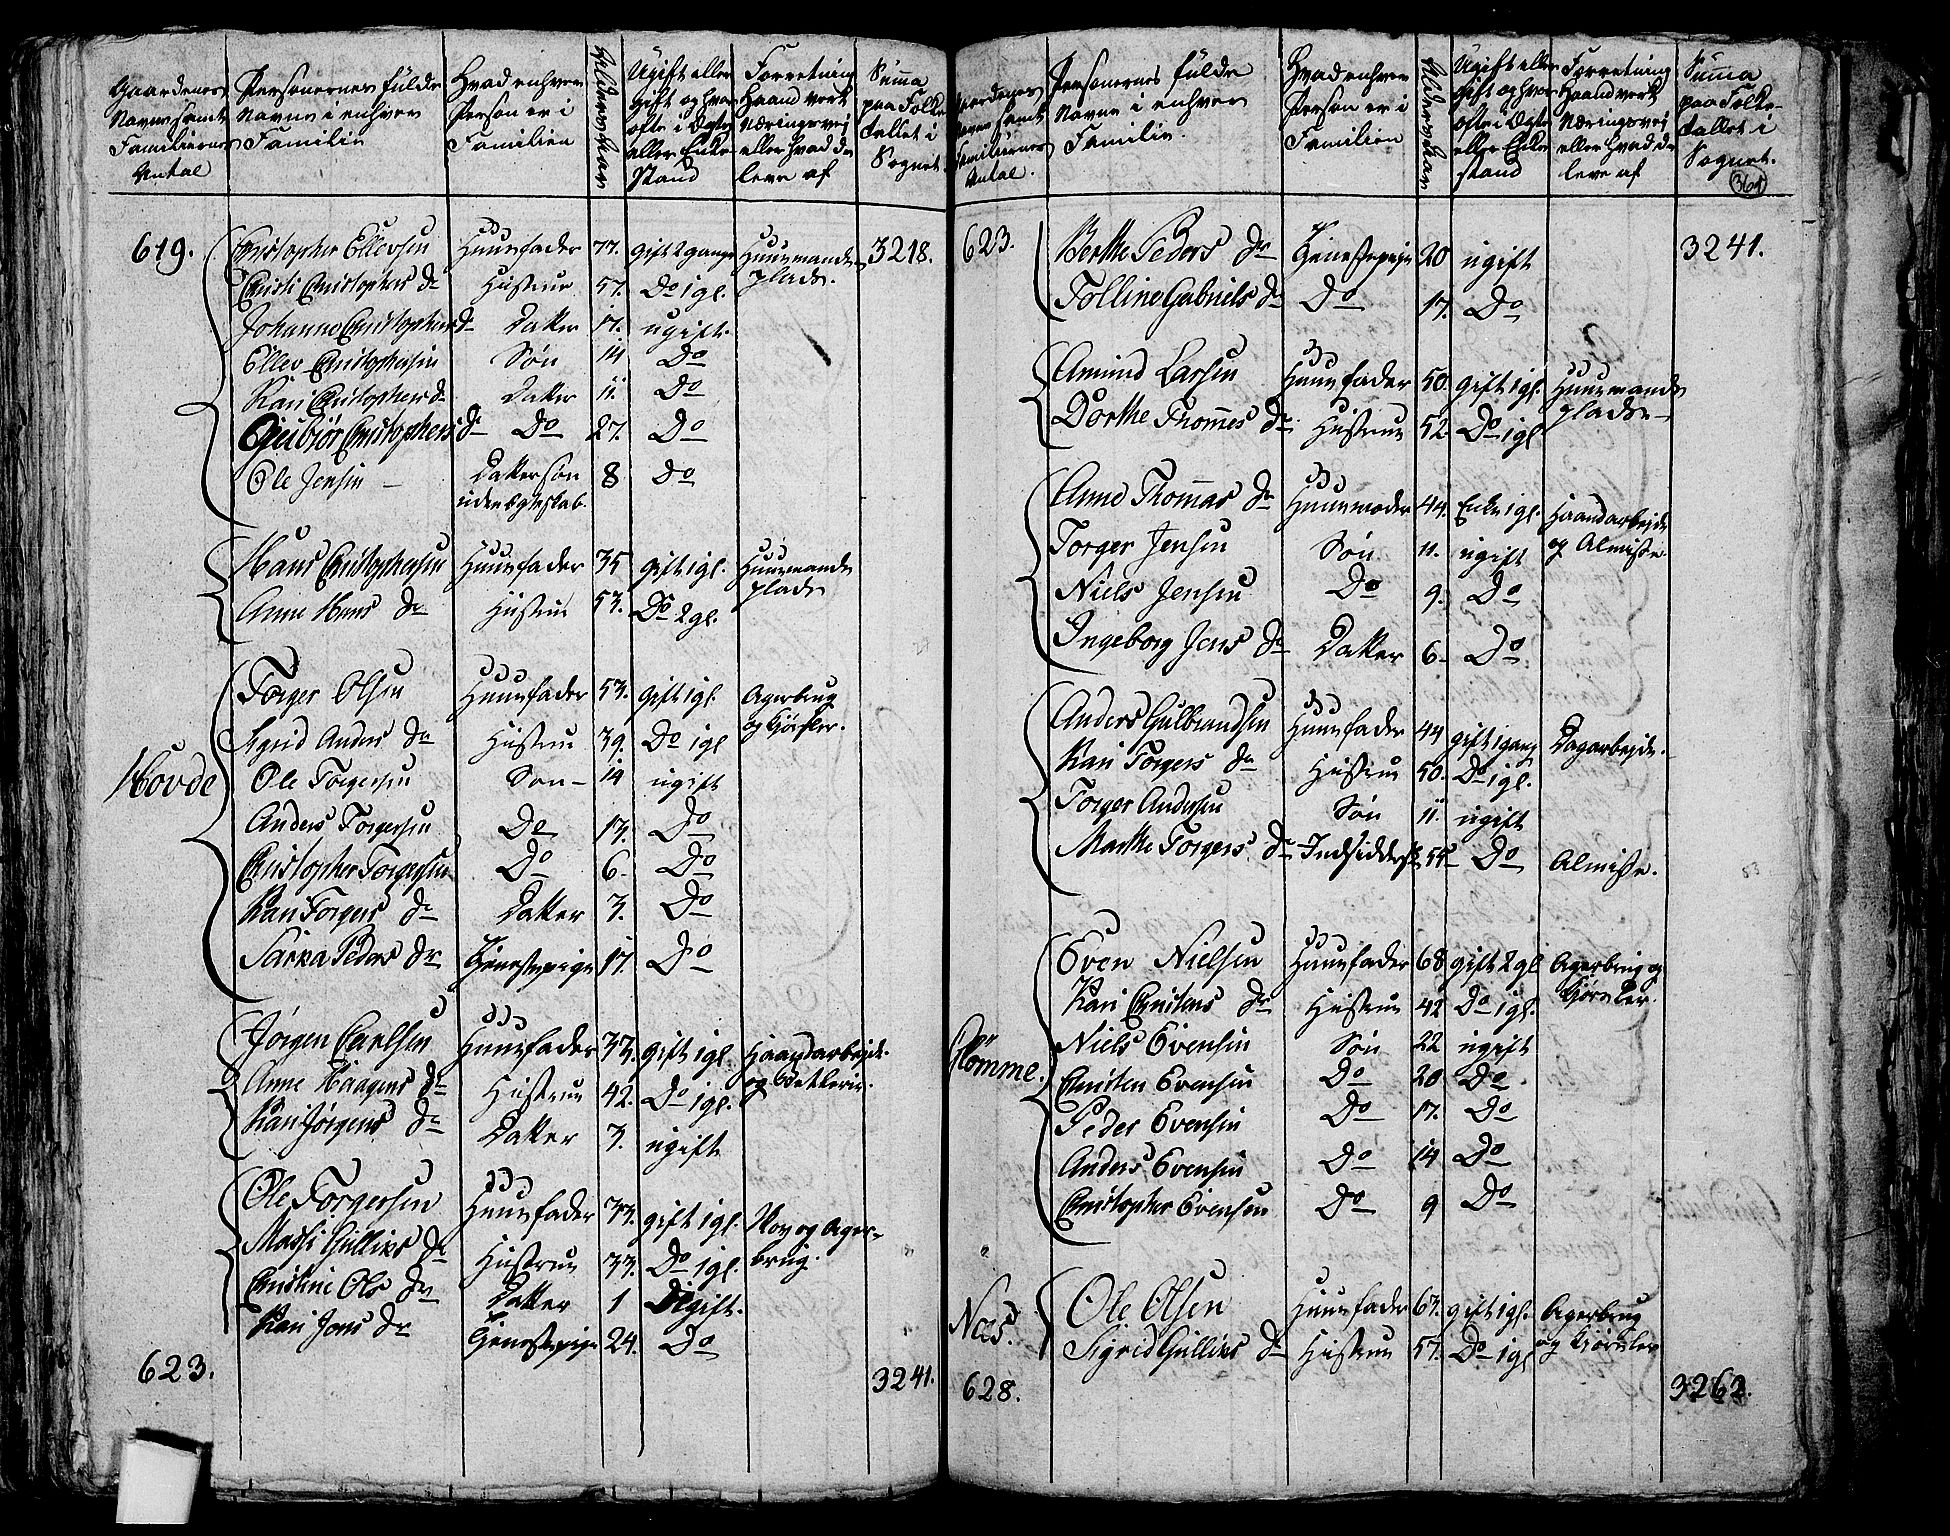 Gaardenes Navne samt Familiernes Antal
Personernes fulde Navne i enhver Familie
Hvad enhver Person er i Familien
Alderens Aar
Ugift eller Gift og hvor ofte i Ægte eller Enke Stand
Forretning Haandverk Næringsvej eller hvad de leve af
Summa paa Folketallet i Sognet.
619. Christopher Ellevsen Huusfader 77. gift 2 gange Huusmands plads. 3218.
Christi Christophers Dr Hustrue 57. Do 1 gl.
Johanne Christophers Dr Datter 17. ugift.
Ellev Christophersen Søn 14 Do
Kari Christophers Dr Datter 11. Do
Gubjør Christophers Dr Do 27. Do
Ole Jensen – Dattersøn 8 Do
uden Egteskab.
Hans Christophersen Huusfader 35 gift 1 gl. Huusmands plads
Anne Hans Dr Hustrue 53. Do 2 gl.
Torger Olsen Huusfader 53. gift 1 gl. Agerbrug og Kjørsler.
Sigrid Anders Dr Hustrue 39. Do 1 gl
Hovde Ole Torgersen Søn – 14 ugift
Anders Torgersen Do 13. Do
Christopher Torgersen Do 6. Do
Kari Torgers Dr Datter 3. Do
Peders Dr Tjenestepige 17. Do
Jørgen Carlsen Huusfader 33. gift 1 gl. Haandarbejde og Betlerie.
Anne Haagens Dr Hustrue 42. Do 1 gl.
Kari Jørgens Dr Datter 3. ugift
Ole Torgersen Huusfader 33. gift 1 gl. Skov og Ager-
Massi Gulliks Dr Hustrue 33. Do 1 gl. brug.
Christine Ols Dr Datter 1 Ugift.
Kari Jens Dr Tjenestepige 24. Do
623. 3241.
Gaardenes Navne samt Familiernes Antal.
Personernes fulde Navne i enhver Familie.
Hvad enhver Person er i Familien
Alderens Aar
Ugift eller Gift og hvor ofte i Ægte eller Enke stand
Forretning Haandverk Næringsvej eller hvad de leve af
Summa paa Folketallet i Sognet.
361
623. Berthe Peders Dr Tjenestepige 20 ugift 3241.
Tolline Gabriels Dr Do 17. Do
Amund Larsen Huusfader 50. gift 1 gl. Huusmands plads –
Dorthe Thommes Dr Hustrue 52. Do 1 gl
Anne Thommas Dr Huusmoder 44. Enke 1 gl. Haandarbejde og Almisse.
Torger Jensen Søn 11. ugift
Niels Jensen Do 9. Do
Ingeborg Jens Dr Datter 6 – Do
Anders Gulbrandsen Huusfader 44 gift 1 gang Dagarbejde.
Kari Torgers Dr Hustrue 50. Do 1 gl.
Torger Andersen Søn 11. ugift
Marthe Torgers Dr Indsidderske 55 Do Almisse.
Even Nielsen Huusfader 68 gift 2 gl Agerbrug og Kjørsler.
Kari Christens Dr Hustrue 42 Do 1 gl.
Glomme. Niels Evensen Søn 22 ugift
Christen Evensen Do 20 Do
Peder Evensen Do 17. Do
Anders Evensen Do 14 Do
Christopher Evensen Do 9 Do
Næs. Ole Olsen Huusfader 63. gift 1 gl. Agerbrug
Sigrid Gulliks Dr Hustrue 57. Do 1 gl og Kjørsler
628. 3262.